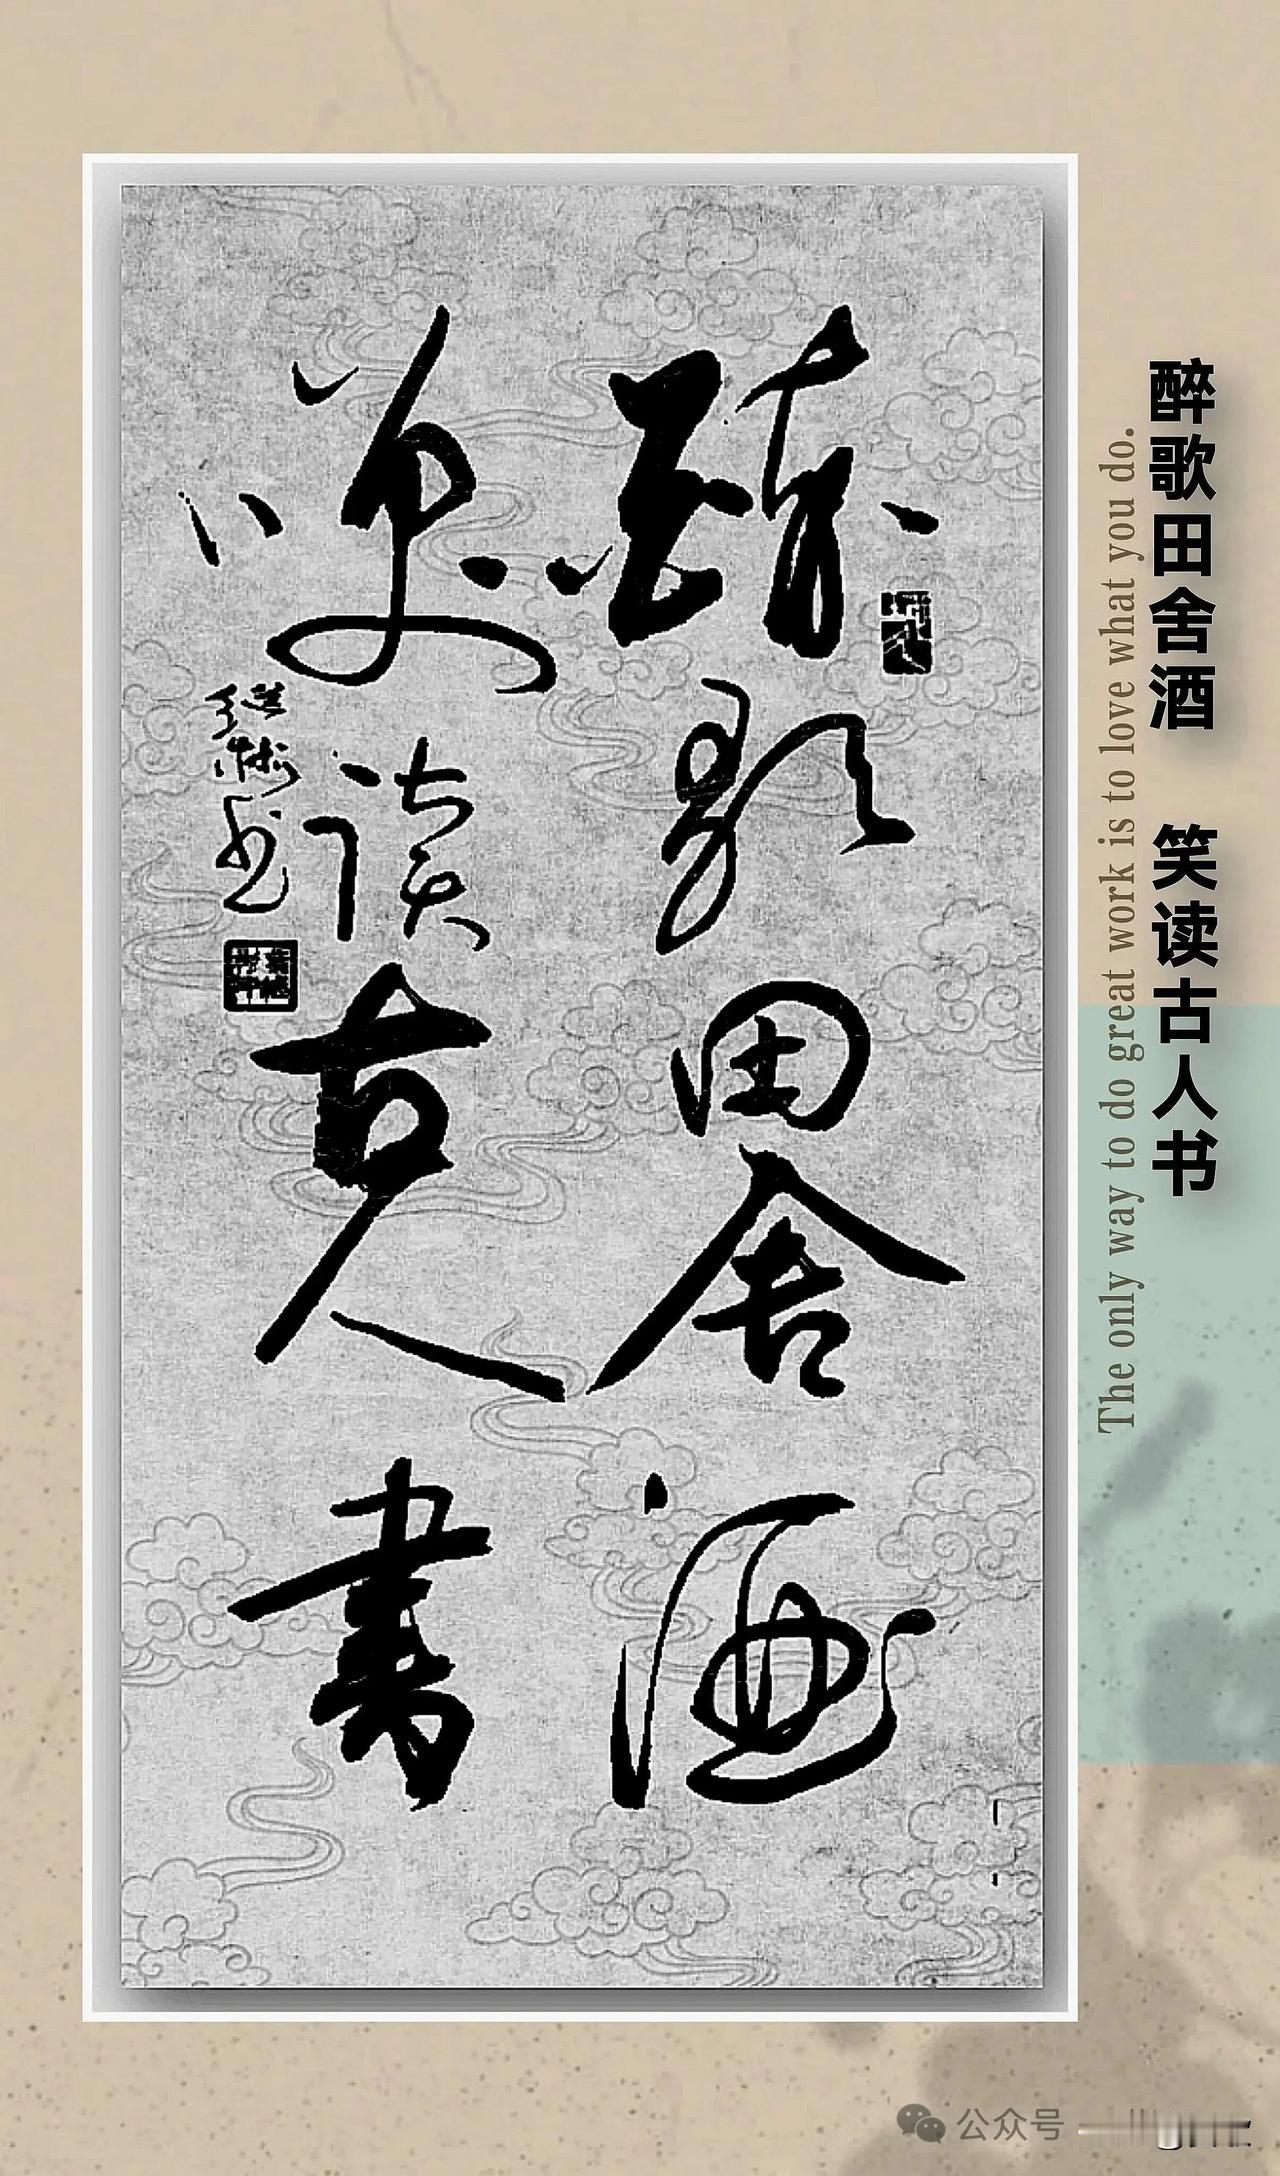 醉歌田舍酒
笑读古人書
继术书
醉歌田舍酒 笑读古人书
The only way to do great work is to love what you do.
公众号